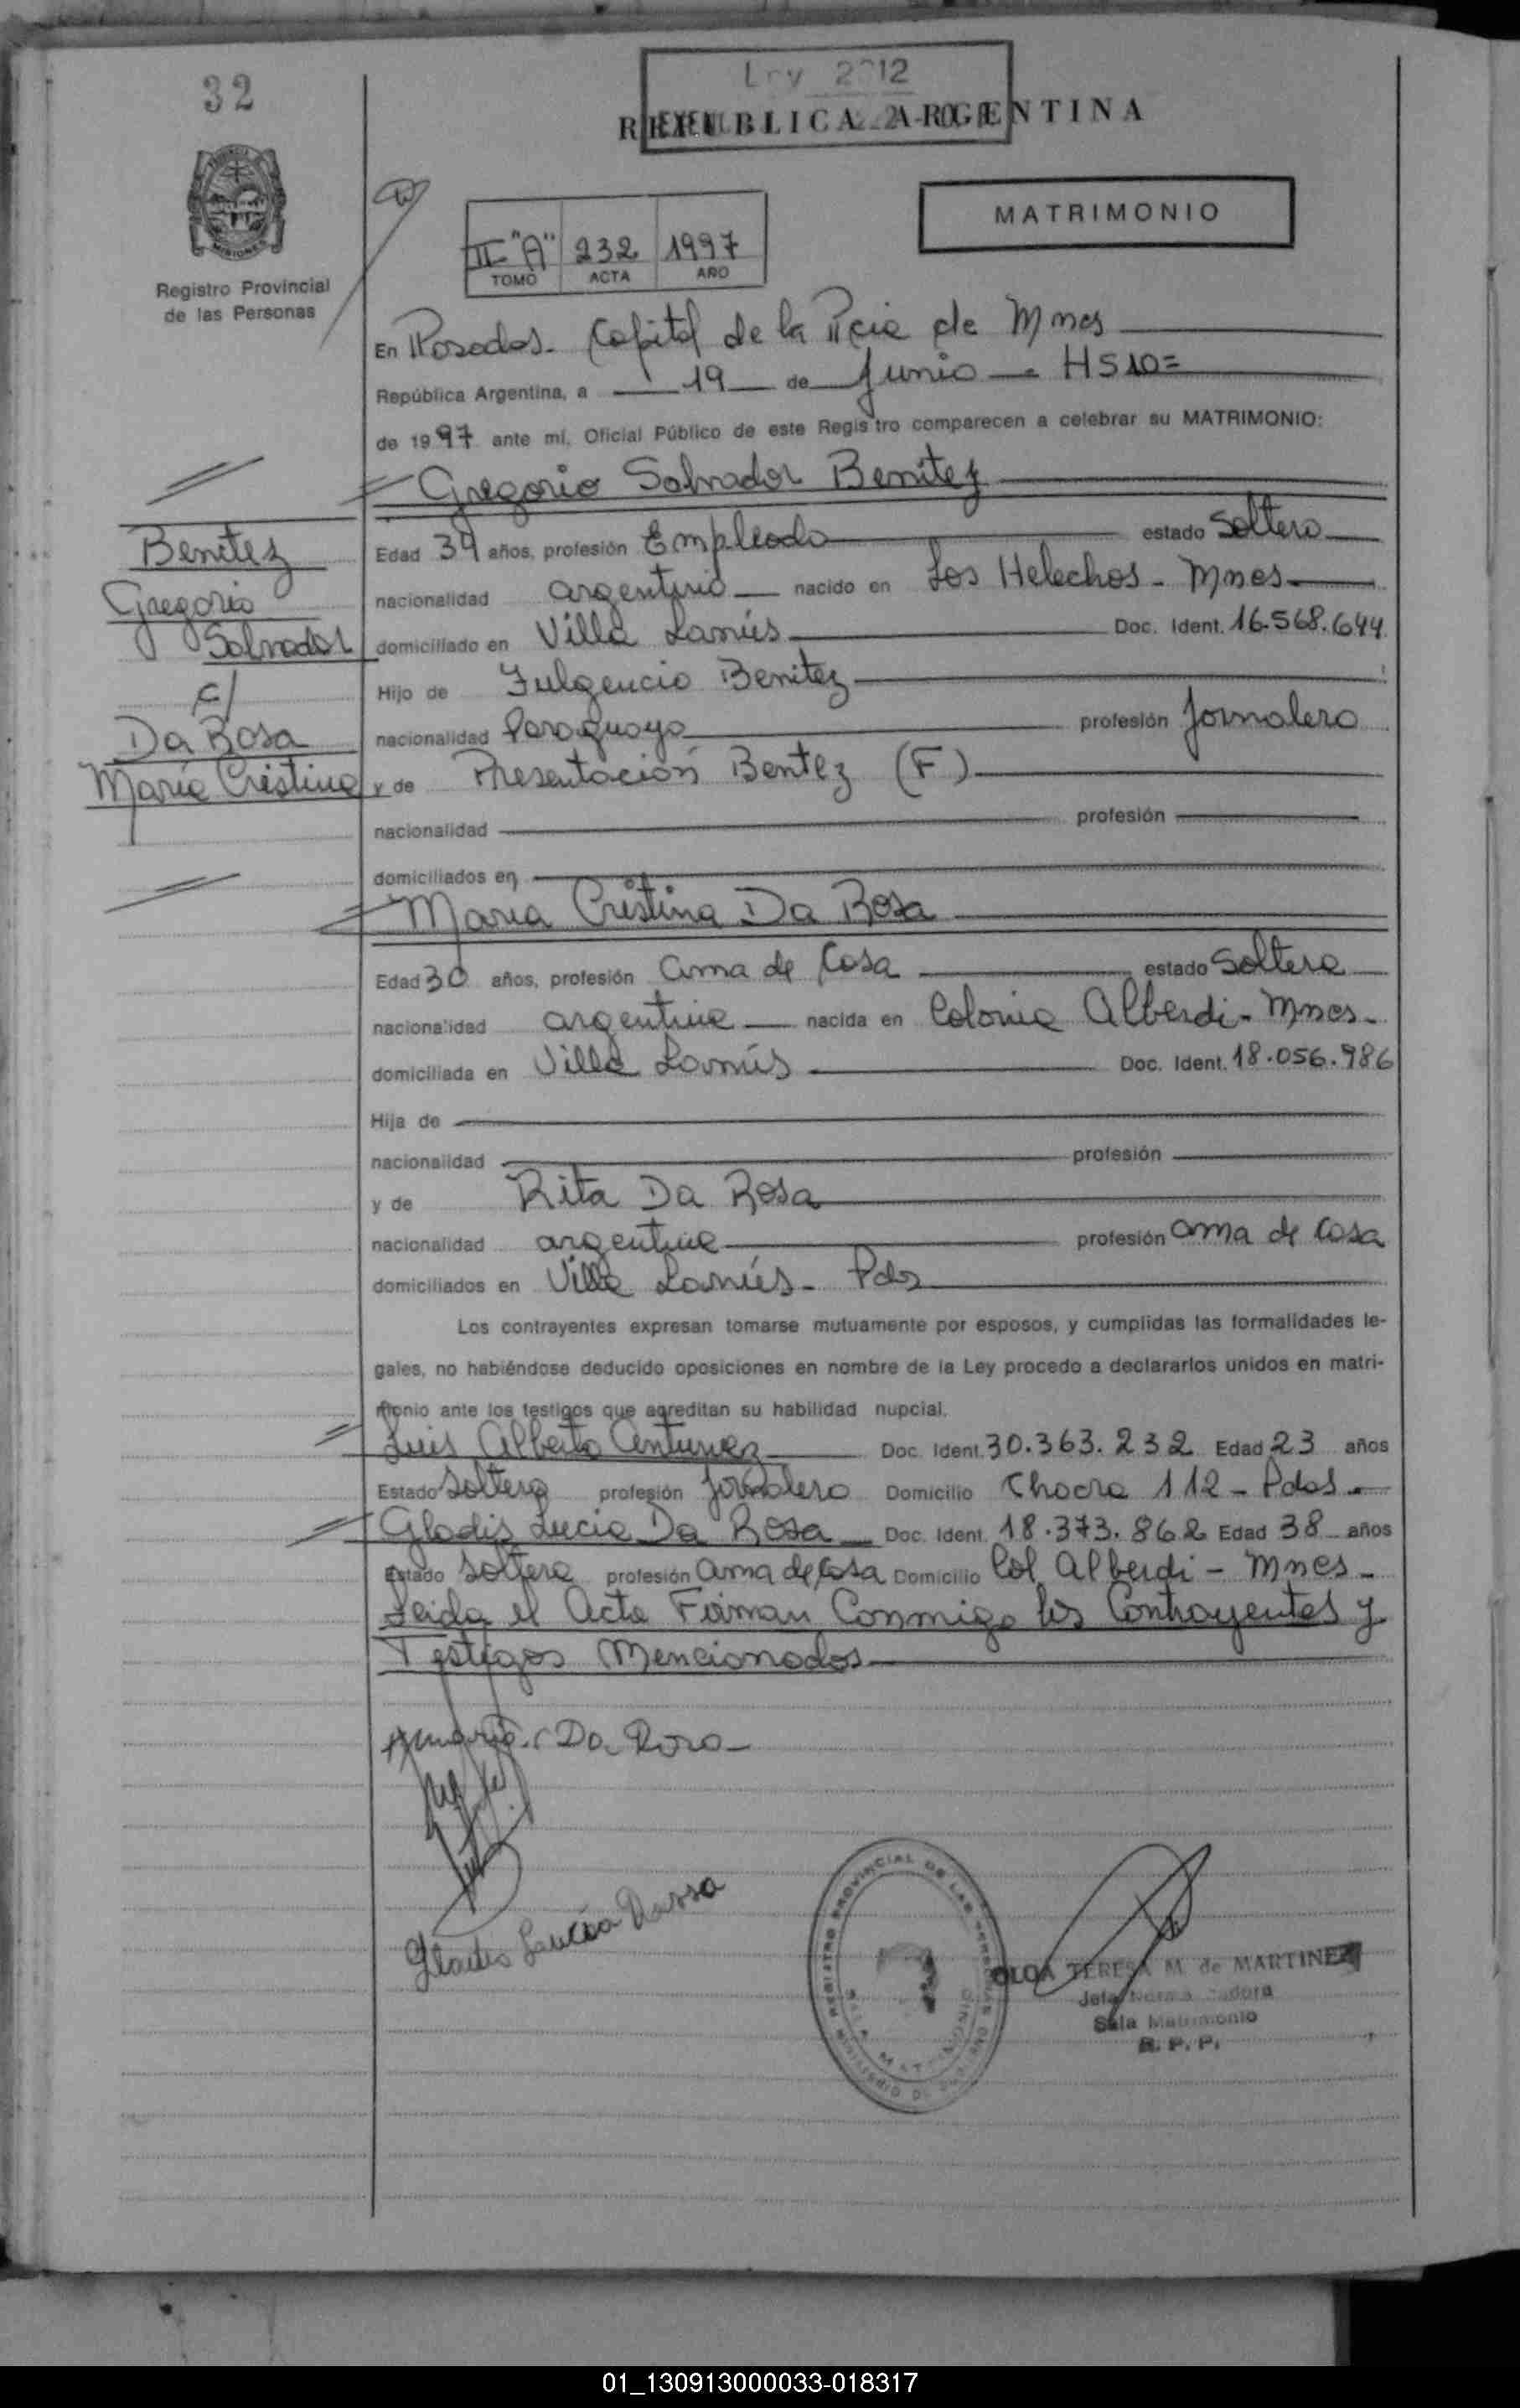 32
Ley 2012
REPUBLICA ARGENTINA
MATRIMONIO
II "A" 232 1997
TOMO ACTA AÑO
Registro Provincial
de las Personas
En Posadas - Capital de la Pcia de Mnes
República Argentina, a 19 de Junio - HS 10=
de 1997 ante mí, Oficial Público de este Registro comparecen a celebrar su MATRIMONIO:
Gregorio Salvador Benitez
Benitez
Gregorio
Salvador
c/
Da Rosa
María Cristina
Edad 34 años, profesión Empleado estado Soltero
nacionalidad argentino nacido en Los Helechos - Mnes
domiciliado en Villa Lanús Doc. Ident. 16.568.644
Hijo de Fulgencio Benitez
nacionalidad Paraguayo profesión Jornalero
y de Presentación Bentez (F)
nacionalidad profesión
domiciliados en
María Cristina Da Rosa
Edad 30 años, profesión ama de Casa estado Soltera
nacionalidad argentina nacida en Colonia Alberdi - Mnes -
domiciliada en Villa Lanús Doc. Ident. 18.056.986
Hija de
nacionalidad profesión
y de Rita Da Rosa
nacionalidad argentina profesión ama de Casa
domiciliados en Villa Lanús - Pdas
Los contrayentes expresan tomarse mutuamente por esposos, y cumplidas las formalidades le-
gales, no habiéndose deducido oposiciones en nombre de la Ley procedo a declararlos unidos en matri-
monio ante los testigos que acreditan su habilidad nupcial.
Luis Alberto Antunez Doc. Ident. 30.363.232 Edad 23 años
Estado Soltero profesión Jornalero Domicilio Chacra 112 - Pdas -
Gladis Lucia Da Rosa Doc. Ident. 18.373.862 Edad 38 años
Estado Soltera profesión ama de Casa Domicilio Col Alberdi - Mnes -
Leida el Acta Firman Conmigo los Contrayentes y
Testigos Mencionados
Maria C Da Rosa
Gladis Lucia Darosa
REGISTRO PROVINCIAL DE LAS PERSONAS
SALA MATRIMONIO
OLGA TERESA M. de MARTINEZ
Sala Matrimonio
R. P. P.
01_130913000033-018317